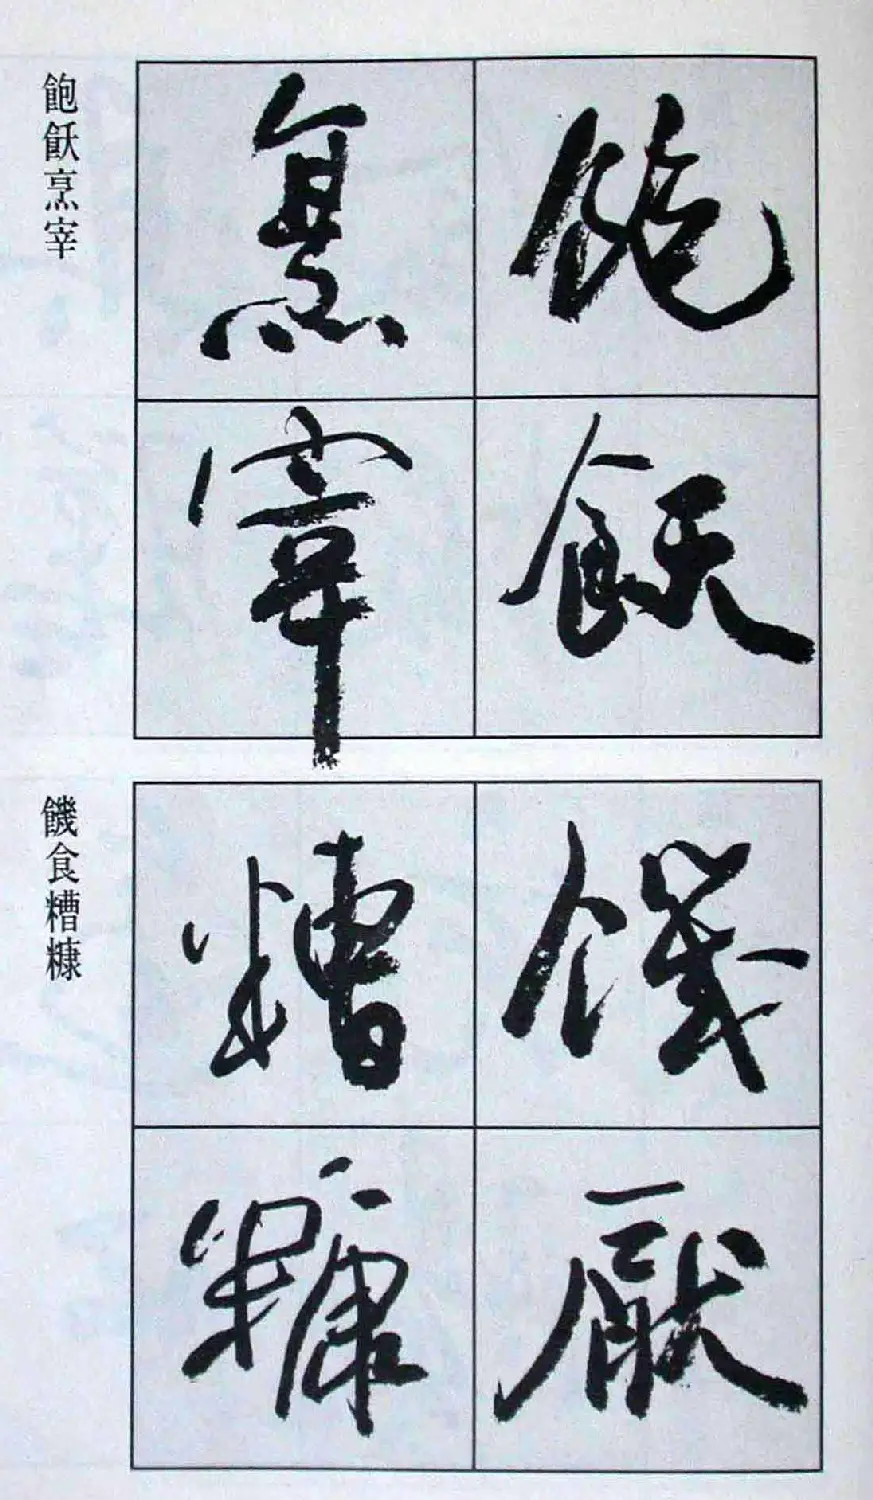 飽飫
烹宰
飽飫烹宰
饑厭
糟糠
饑食糟糠